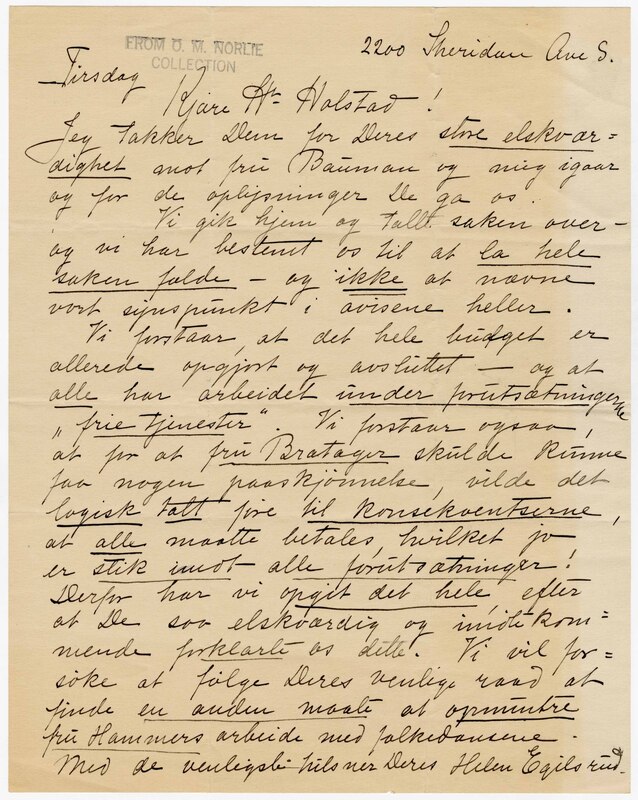 FROM O. M. NORLIE
COLLECTION
2200 Sheridan Ave S.
Tirsdag
Kjære Hr Holstad!
Jeg takker Dem for Deres store elskvær=
dighet mot fru Bauman og mig igaar
og for de oplysninger De ga os.
Vi gik hjem og talte saken over -
og vi har bestemt os til at la hele
saken falde - og ikke at nævne
vort synspunkt i avisene heller.
Vi forstaar, at det hele budget er
allerede opgjort og avsluttet - og at
alle har arbeidet under forutsætningerne
"frie tjenester". Vi forstaar ogsaa,
at for at fru Bratager skulde kunne
faa nogen paaskjönnelse, vilde det
logisk talt føre til konsekventserne,
at alle maatte betales, hvilket jo
er stik imot alle forutsætninger!
Derfor har vi opgit det hele efter
at De saa elskværdig og imötekom=
mende forklarte os dette. Vi vil for=
söke at følge Deres venlige raad at
finde en anden maate at opmuntre
fru Hammers arbeide med folkedansene.
Med de venligste hilsner Deres Helen Egilsrud.